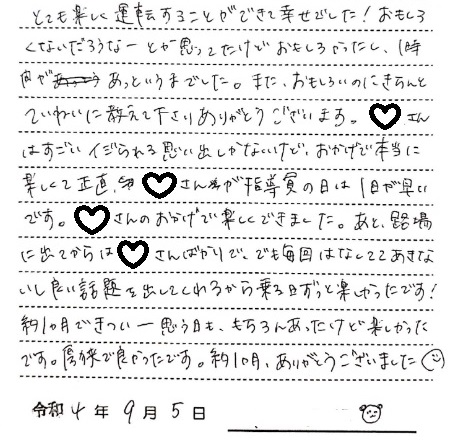 とても楽しく運転することができて幸せでした！おもしろ
くないだろうなーとか思ってたけどおもしろかったし、1時
間があっというまでした。また、おもしろいのにきちんと
ていねいに教えて下さりありがとうございます。♡さん
はすごいイジられる思い出しかないけど、おかげで本当に
楽しくて正直、♡さんが指導員の日は1日が早い
です。♡さんのおかげで楽しくできました。あと、路上場
に出てからは♡さんばかりで、でも毎回はなしててあきな
いし良い話題を出してくれるから乗る日ずっと楽しかったです！
約1ヶ月できついー思う日も、もちろんあったけど楽しかった
です。で良かったです。約1ヶ月、ありがとうございました
令和4年9月5日